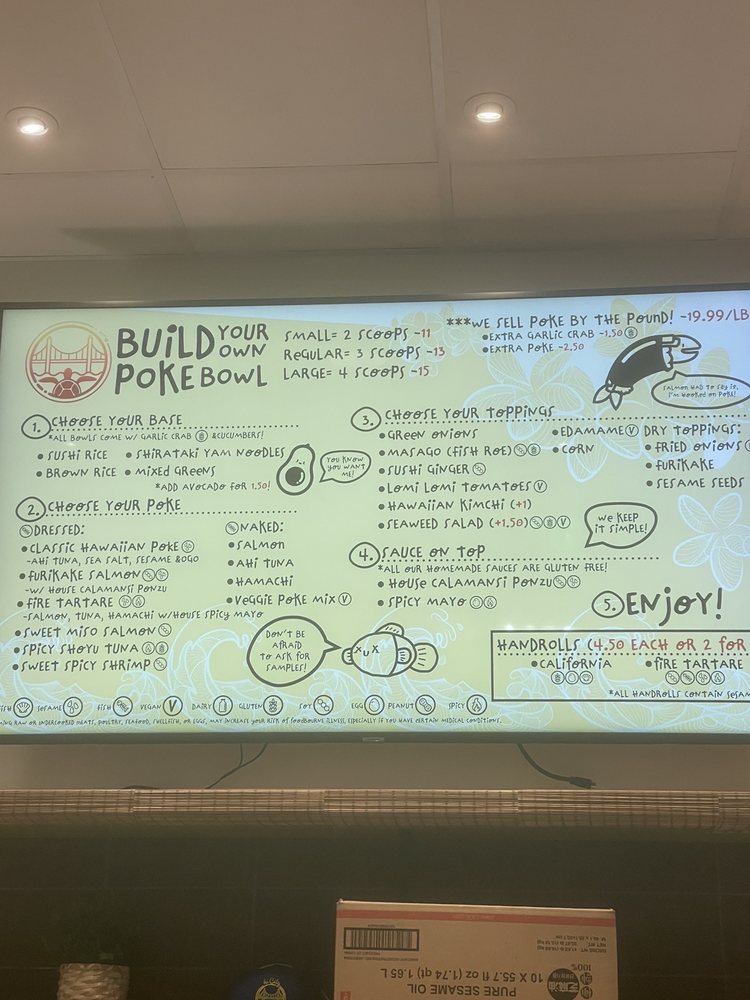 BUILD YOUR OWN
POKE BOWL
SMALL= 2 SCOOPS -11
REGULAR= 3 SCOOPS -13
LARGE= 4 SCOOPS -15
***WE SELL POKE BY THE POUND! -19.99/LB
•EXTRA GARLIC CRAB -1.50
•EXTRA POKE -2.50
SALMON HAD TO SAY IT,
I'M HOOKED ON POKE!
1. CHOOSE YOUR BASE
*ALL BOWLS COME W/ GARLIC CRAB &CUCUMBERS!
•SUSHI RICE •SHIRATAKI YAM NOODLES
•BROWN RICE •MIXED GREENS
*ADD AVOCADO FOR 1.50!
YOU KNOW
YOU WANT
ME!
2. CHOOSE YOUR POKE
DRESSED:
•CLASSIC HAWAIIAN POKE
-AHI TUNA, SEA SALT, SESAME &OGO
•FURIKAKE SALMON
-W/ HOUSE CALAMANSI PONZU
•FIRE TARTARE
-SALMON, TUNA, HAMACHI W/HOUSE SPICY MAYO
•SWEET MISO SALMON
•SPICY SHOYU TUNA
•SWEET SPICY SHRIMP
NAKED:
•SALMON
•AHI TUNA
•HAMACHI
•VEGGIE POKE MIX V
DON'T BE
AFRAID
TO ASK FOR
SAMPLES!
3. CHOOSE YOUR TOPPINGS
•GREEN ONIONS
•MASAGO (FISH ROE)
•SUSHI GINGER
•LOMI LOMI TOMATOES V
•HAWAIIAN KIMCHI (+1)
•SEAWEED SALAD (+1.50) V
•EDAMAME V
•CORN
DRY TOPPINGS:
•FRIED ONIONS
•FURIKAKE
•SESAME SEEDS
WE KEEP
IT SIMPLE!
4. SAUCE ON TOP
*ALL OUR HOMEMADE SAUCES ARE GLUTEN FREE!
•HOUSE CALAMANSI PONZU
•SPICY MAYO
5. ENJOY!
HANDROLLS (4.50 EACH OR 2 FOR
•CALIFORNIA •FIRE TARTARE
*ALL HANDROLLS CONTAIN SESAM
FISH SESAME FISH VEGAN V DAIRY GLUTEN SOY EGG PEANUT SPICY
MING RAW OR UNDERCOOKED MEATS, POULTRY, SEAFOOD, SHELLFISH, OR EGGS, MAY INCREASE YOUR RISK OF FOODBOURNE ILLNESS, ESPECIALLY IF YOU HAVE CERTAIN MEDICAL CONDITIONS.
PURE SESAME OIL
10 X 55.7 fl oz (1.74 qt) 1.65 L
100%
芝麻油